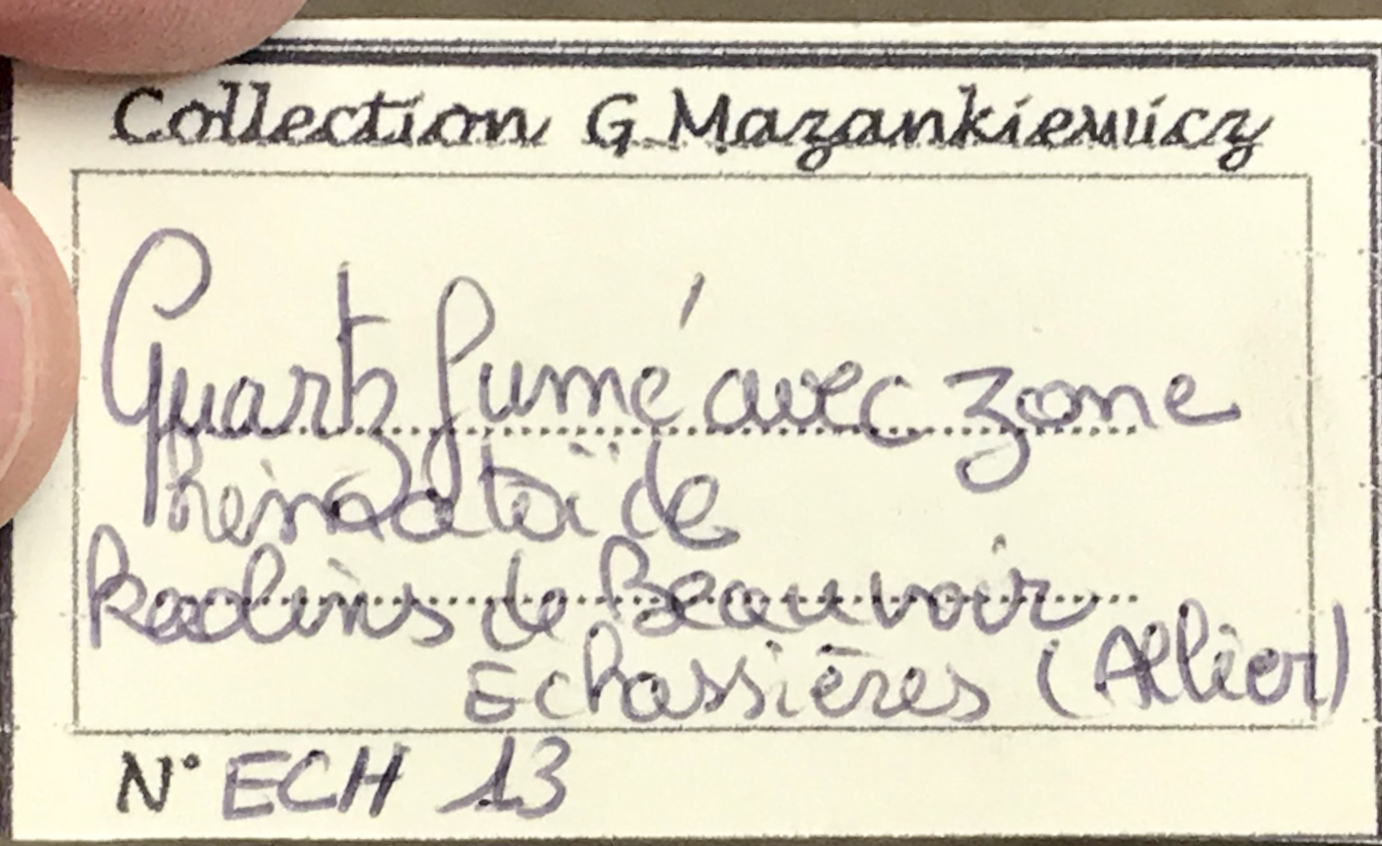 Collection G. Mazankiewicz
Quartz fumé avec zone
hématoïde
Kaolins de Beauvoir
Echassières (Allier)
N° ECH 13